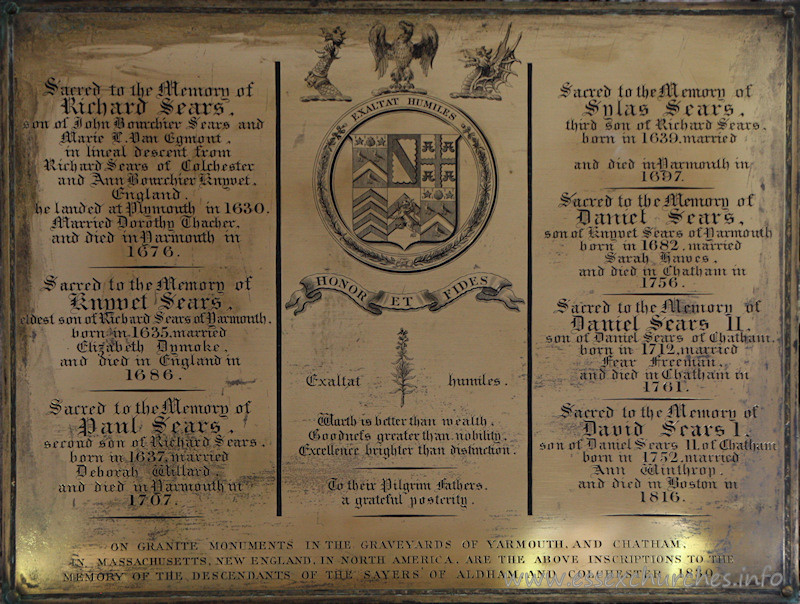 Sacred to the Memory of
Richard Sears.
son of John Bourchier Sears and
Marie L. Van Egmont,
in lineal descent from
Richard Sears of Colchester
and Ann Bourchier Knyvet.
England.
he landed at Plymouth in 1630.
Married Dorothy Thacher,
and died in Yarmouth in
1676.
Sacred to the Memory of
Knyvet Sears,
eldest son of Richard Sears of Yarmouth.
born in 1635. married
Elizabeth Dymoke,
and died in England in
1686.
Sacred to the Memory of
Paul Sears,
second son of Richard Sears.
born in 1637, married
Deborah Willard,
and died in Yarmouth in
1707.
EXALTAT HUMILES
HONOR ET FIDES
Exaltat humiles.
Worth is better than wealth,
Goodness greater than nobility,
Excellence brighter than distinction.
To their Pilgrim Fathers,
a grateful posterity.
Sacred to the Memory of
Sylas Sears,
third son of Richard Sears.
born in 1639, married
and died in Yarmouth in
1697.
Sacred to the Memory of
Daniel Sears,
son of Knyvet Sears of Yarmouth
born in 1682, married
Sarah Hawes,
and died in Chatham in
1756.
Sacred to the Memory of
Daniel Sears II.
son of Daniel Sears of Chatham.
born in 1712, married
Fear Freeman,
and died in Chatham in
1761.
Sacred to the Memory of
David Sears I.
son of Daniel Sears II. of Chatham
born in 1752, married
Ann Winthrop,
and died in Boston in
1816.
ON GRANITE MONUMENTS IN THE GRAVEYARDS OF YARMOUTH, AND CHATHAM,
IN MASSACHUSETTS, NEW ENGLAND, IN NORTH AMERICA, ARE THE ABOVE INSCRIPTIONS TO THE
MEMORY OF THE DESCENDANTS OF THE SAYERS OF ALDHAM AND COLCHESTER
www.essexchurches.info